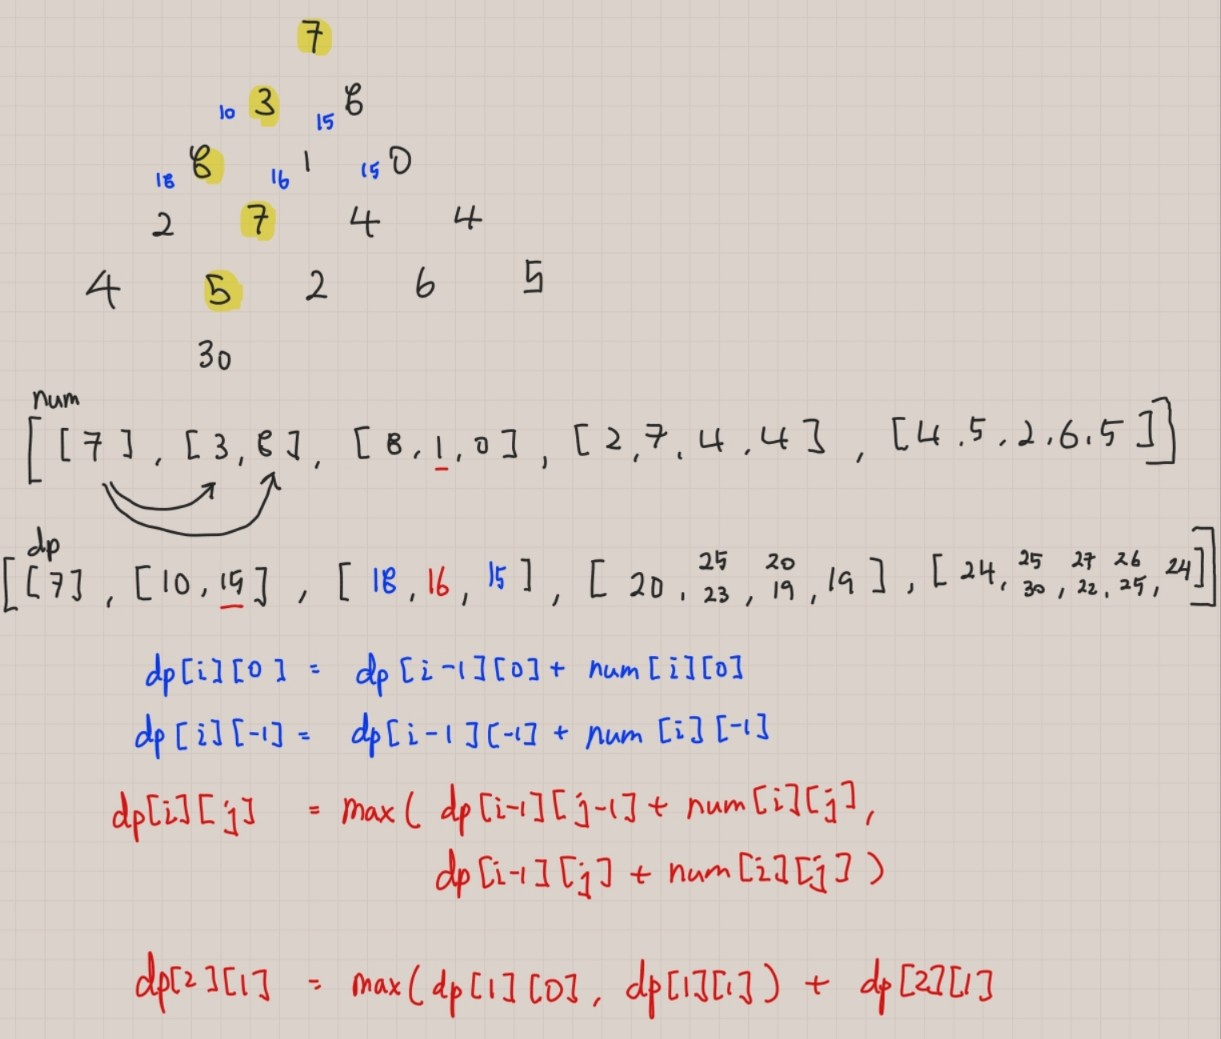 7
10 3 15 8
18 8 16 1 15 0
2 7 4 4
4 5 2 6 5
30
num
[ [ 7 ] , [ 3 , 8 ] , [ 8 , 1 , 0 ] , [ 2 , 7 , 4 , 4 ] , [ 4 , 5 , 2 , 6 , 5 ] ]
dp
25 20 25 27 26
[ [ 7 ] , [ 10 , 15 ] , [ 18 , 16 , 15 ] , [ 20 , 23 , 19 , 19 ] , [ 24 , 30 , 22 , 25 , 24 ] ]
dp[i][0] = dp[i-1][0] + num[i][0]
dp[i][-1] = dp[i-1][-1] + num[i][-1]
dp[i][j] = max( dp[i-1][j-1] + num[i][j],
dp[i-1][j] + num[i][j] )
dp[2][1] = max( dp[1][0], dp[1][1] ) + dp[2][1]